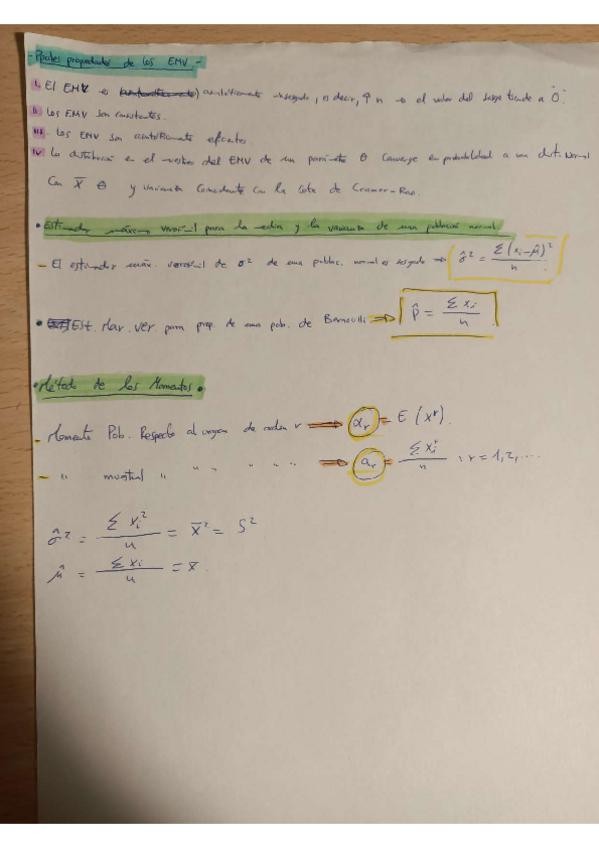 - Ppales propiedades de los EMV. -
i. El EMV es asintóticamente insesgado, es decir, ↑ n → el valor del sesgo tiende a 0.
ii. Los EMV son consistentes.
iii. Los EMV son asintóticamente eficientes.
iv. La distribución en el muestreo del EMV de un parámetro θ converge en probabilidad a una dist. Normal
con X̄ θ y varianza coincidente con la cota de Cramer-Rao.
• Estimador máximo verosímil para la media y la varianza de una población normal
- El estimador máx. verosímil de σ² de una poblac. normal es sesgado → σ̂² = Σ(xi - μ̂)² / n
• Est. Max. Ver. para prop. de una pob. de Bernoulli ⇒ p̂ = Σ xi / n
• Método de los Momentos.
- Momento Pob. Respecto al origen de orden r ⇒ αr = E(X^r).
- " muestral " " " " " ⇒ ar = Σ xi^r / n ; r = 1, 2, ...
σ̂² = Σ xi² / n = x̄² = S²
μ̂ = Σ xi / n = x̄.